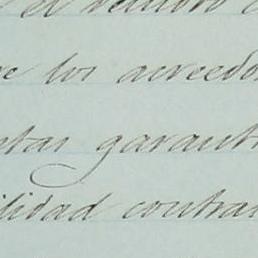 el
los acreedo
garant
ilidad contra